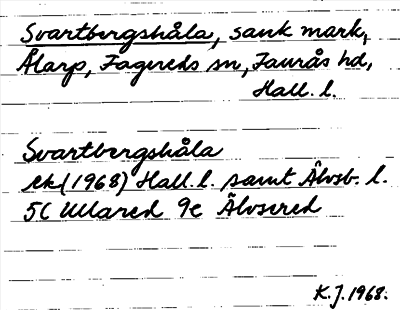 Svartbergshåla, sank mark,
Ålarp, Fagereds sn, Faurås hd,
Hall. l.
Svartbergshåla
ek (1968) Hall. l. samt Älvsb. l.
5C Ullared 9e Älvsered
K.J. 1968.